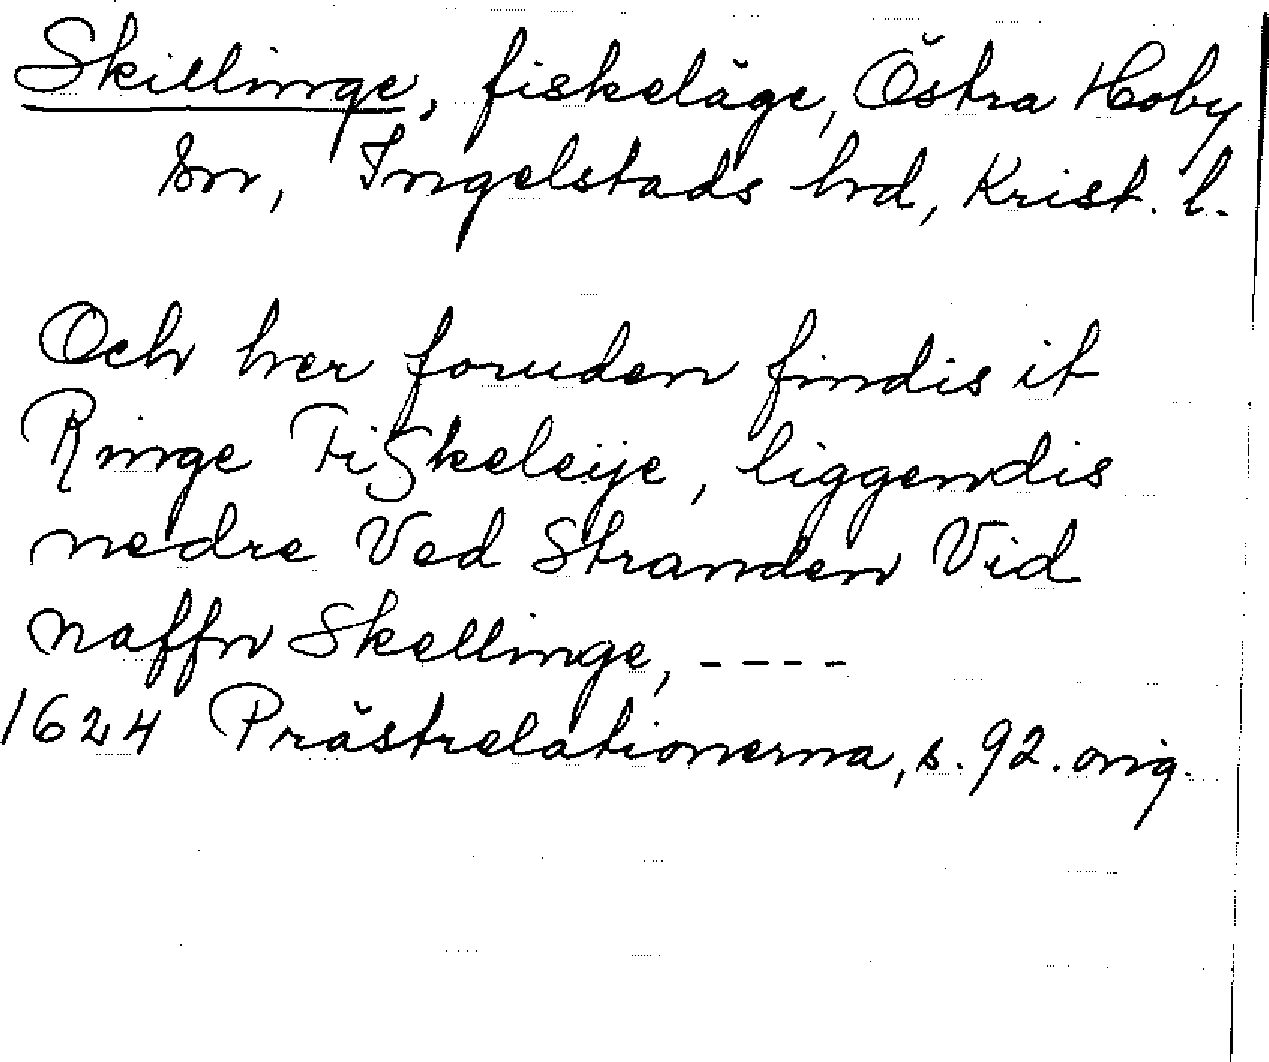 Skillinge, fiskeläge, Östra Hoby
sn, Ingelstads hrd, Krist. l.
Och her foruden findis it
Ringe FiSkeleije, liggendis
nedre Ved Stranden Vid
naffn Skellinge, ----
1624 Prästrelationerna, s. 92. orig.